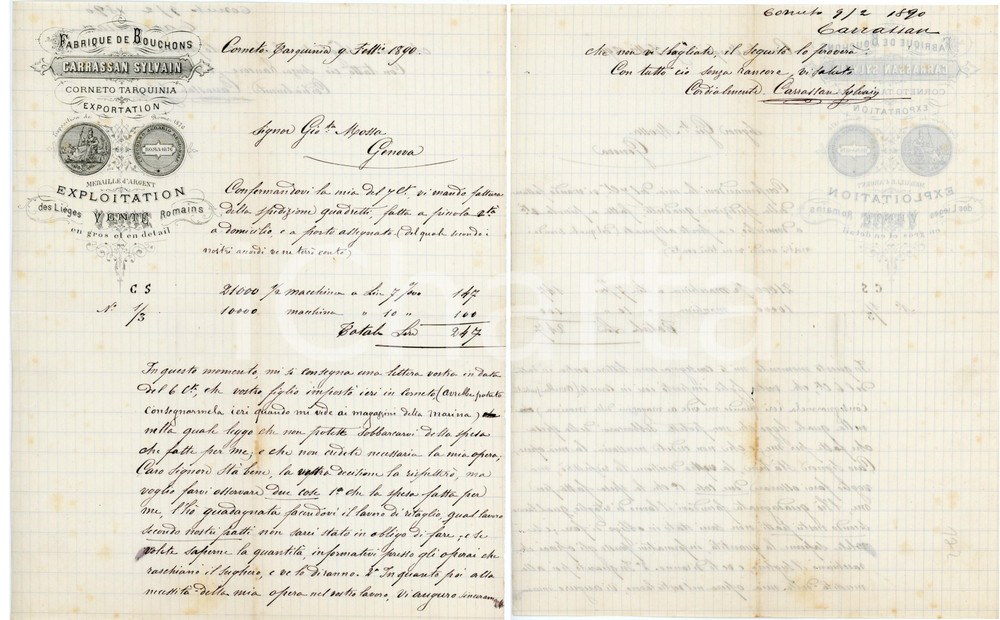 FABRIQUE DE BOUCHONS
CARRASSAN SYLVAIN
CORNETO TARQUINIA
EXPORTATION
ROMA 1876
MEDAILLE D'ARGENT
EXPLOITATION
des Lieges VENTE Romains
en gros et en detail
Corneto Tarquinia 9 Febb. 1890.
Signor Gio. Mossa
Genova
Confermandovi la mia del 7 Ct. vi mando fattura
della spedizione quadretti, fatta a piccola
a domicilio e a porto assegnato (del quale secondo i
nostri accordi ve ne terrò conto)
C S
21000 1/2 macchina a Lire 7 %00 147
N° 1/3 10000 macchina " 10 " 100
Total Lire 247
In questo momento, mi si consegna una lettera vostra in data
del 6 Ct. che vostro figlio impostò ieri in Corneto (avrebbe potuto
consegnarmela ieri quando mi vide ai magazzini della Marina)
nella quale leggo che non potete sobbarcarvi della spesa
che fatte per me, e che non credete necessaria la mia opera,
Caro Signore sta bene, la vostra decisione la rispetterò, ma
voglio farvi osservare due cose 1° che la spesa fatta per
me, l'ho guadagnata facendovi il lavoro di ritaglio, qual lavoro
secondo nostri patti non sarei stato in obligo di fare, e se
volete saperne la quantità, informatevi presso gli operai che
raschiano il sughero, e ve lo diranno. 2° In quanto poi alla
necessità della mia opera nel vostro lavoro, vi auguro sinceram
Corneto 9/2 1890
Carrassan
che non vi sbagliate il seguito lo proverà.
Con tutto ciò senza rancore, vi saluto
Cordialmente. Carrassan Sylvain